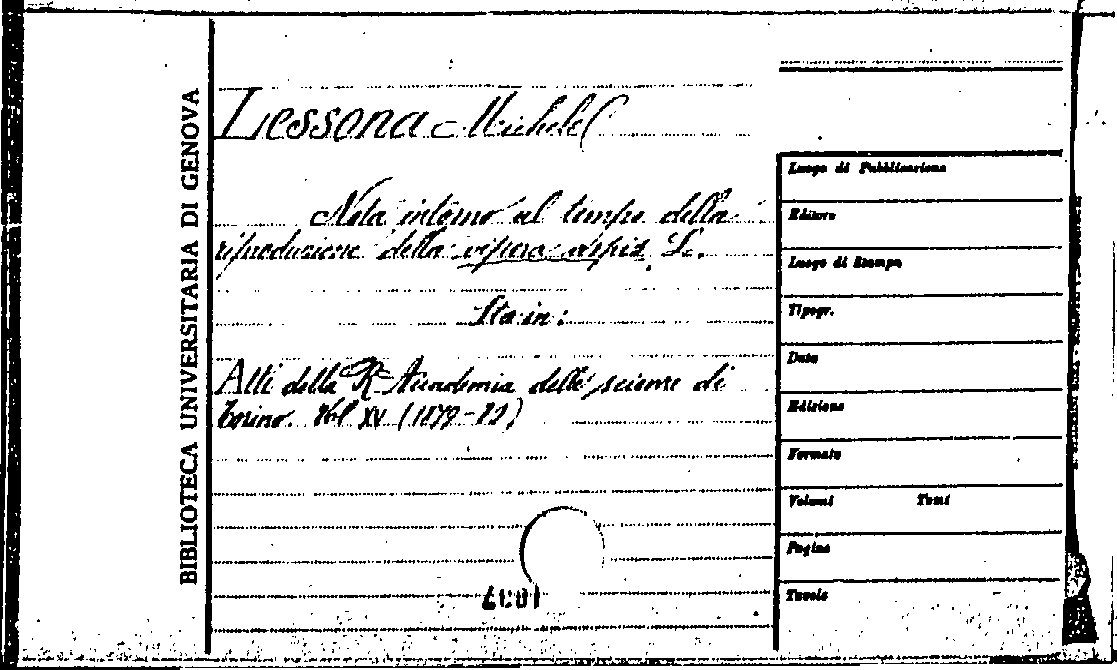 BIBLIOTECA UNIVERSITARIA DI GENOVA
Lessona Michele
Nota intorno al tempo della
riproduzione della vipera aspis L.
Sta in:
Atti della R. Accademia delle scienze di
Torino. Vol XV (1879-80)
Luogo di Pubblicazione
Editore
Luogo di Stampa
Tipogr.
Data
Edizione
Formato
Volumi Tomi
Pagine
Tavole